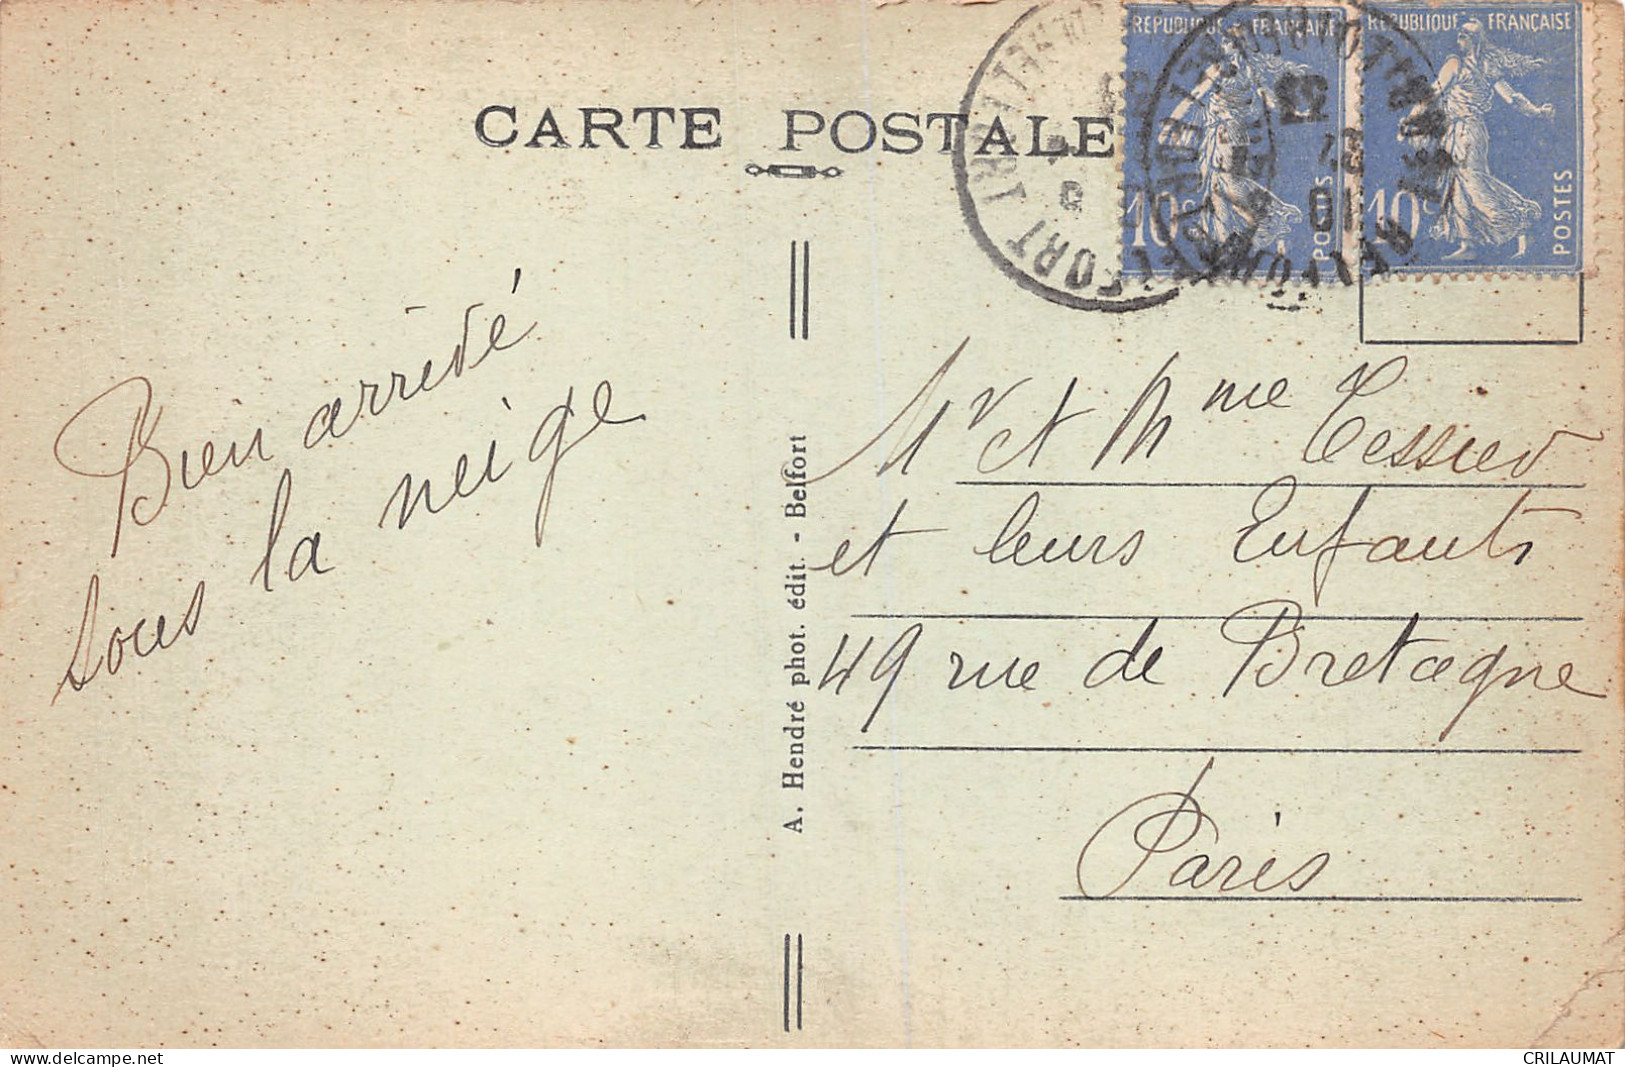 CARTE POSTALE
RÉPUBLIQUE FRANÇAISE
10c
POSTES
RÉPUBLIQUE FRANÇAISE
10c
POSTES
BELFORT
Bien arrivé
sous la neige
A. Hendré phot. édit. - Belfort
Mr et Mme Tessier
et leurs Enfants
49 rue de Bretagne
Paris
www.delcampe.net
CRILAUMAT